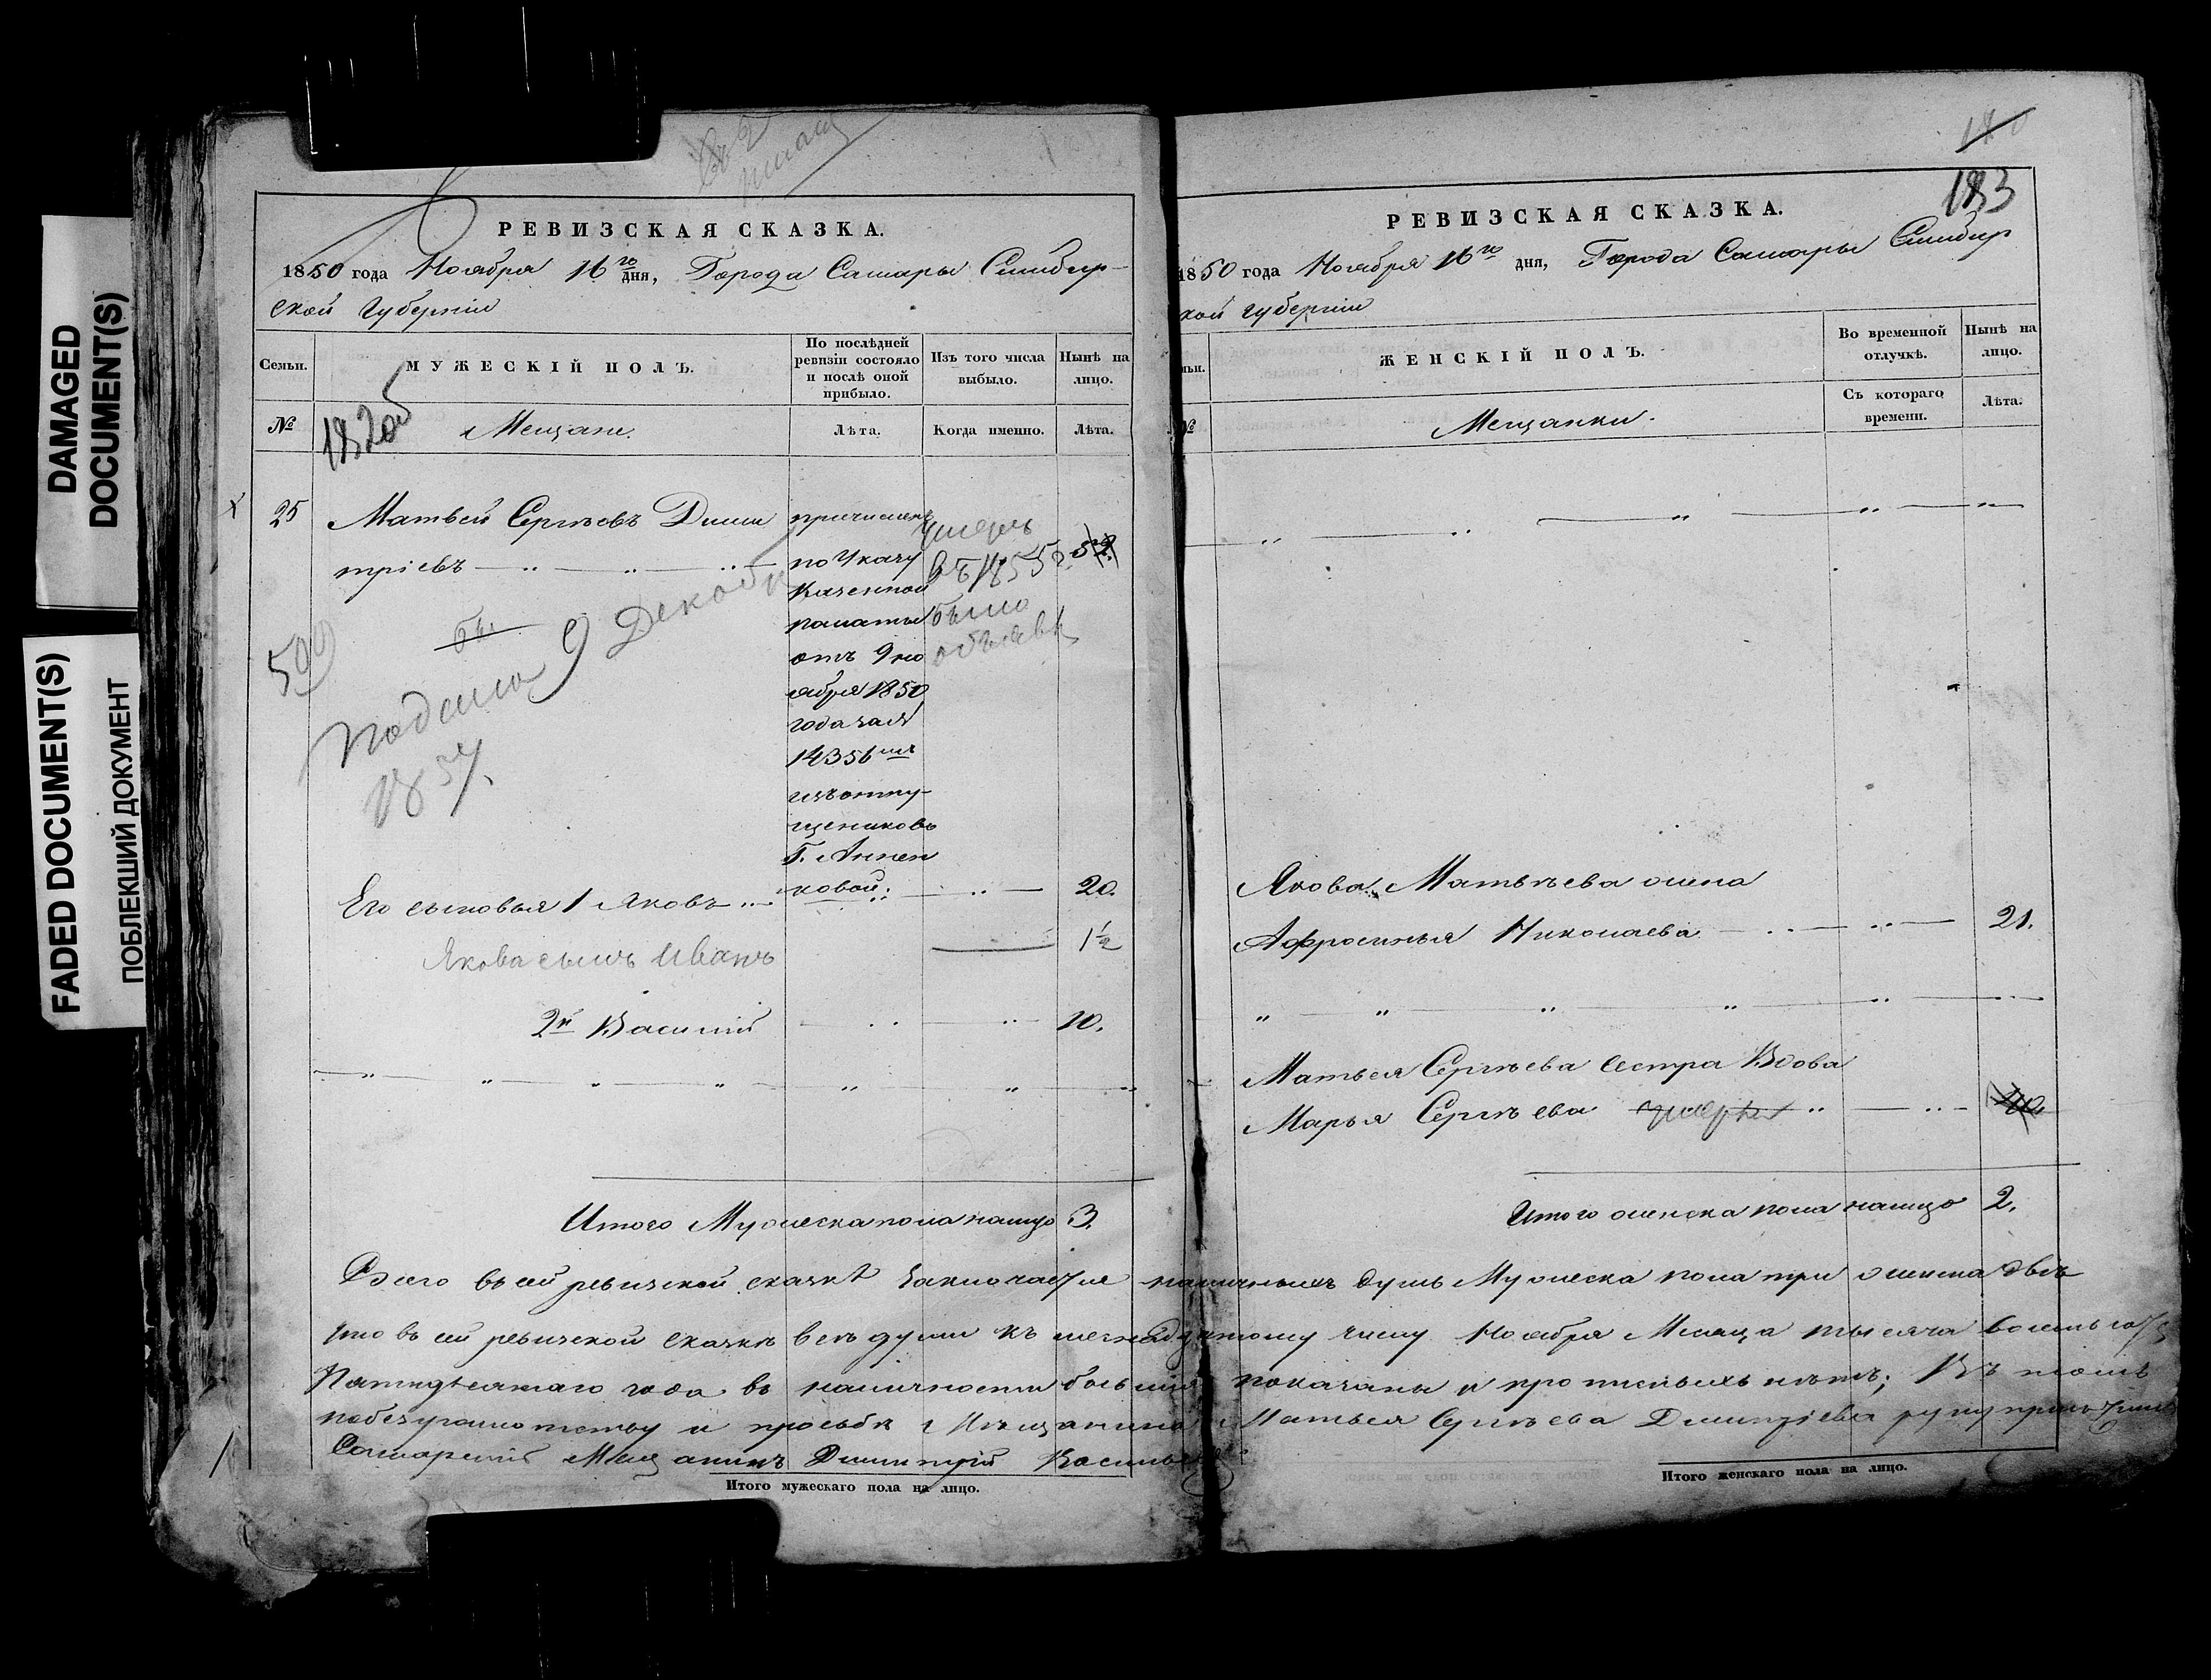 DAMAGED
DOCUMENT(S)
FADED DOCUMENT(S)
ПОБЛЕКШИЙ ДОКУМЕНТ
РЕВИЗСКАЯ СКАЗКА.
1850 года Ноября 16го дня, Города Самары Симбир-
ской губернiи
Семьи.
МУЖЕСКIЙ ПОЛЪ.
По послѣдней
ревизiи состояло
и послѣ оной
прибыло.
Изъ того числа
выбыло.
Нынѣ на
лицо.
№
Мещане.
Лѣта.
Когда именно.
Лѣта.
25
Матвей Сергѣевъ Дими
трiевъ
причисленъ
по Указу
Казенной
палаты
отъ 9 но
ября 1850
года за №
14356мъ
изъ отпу-
щениковъ
Г. Аннен
ковой.
умеръ
въ 1855г.
было
объявл
52
500
Подана 9 Декабр
1857.
Его сыновья 1 Яковъ
20.
Якова сынъ Иванъ
1½
2й Василiй
10.
Итого Мужеска пола налицо 3.
РЕВИЗСКАЯ СКАЗКА.
180
183
1850 года Ноября 16го дня, Города Самары Симбир
кой губернiи
ЖЕНСКIЙ ПОЛЪ.
Во временной
отлучкѣ.
Нынѣ на
лицо.
№
Мещанки.
Съ котораго
времени.
Лѣта.
Якова Матвѣева жена
Афросинья Николаева
21.
Матвея Сергѣева сестра Вдова
Марья Сергѣева умерла
40
Итого женска пола налицо 2.
Всего въ сей ревизской сказкѣ заключается наличныхъ душъ Мужеска пола три женска двѣ
что въ сей ревизской сказкѣ всѣ души къ шестнадцатому числу Ноября Месяца тысяча восемьсотъ
Пятидесятаго года въ наличности бывшiя показаны и прописныхъ нѣтъ; Въ томъ
по безграмотству и просьбѣ Мѣщанина Матвея Сергѣева Димитрiева руку приложилъ
Самарскiй Мещанинъ Димитрiй
Итого мужескаго пола на лицо.
Итого женскаго пола на лицо.